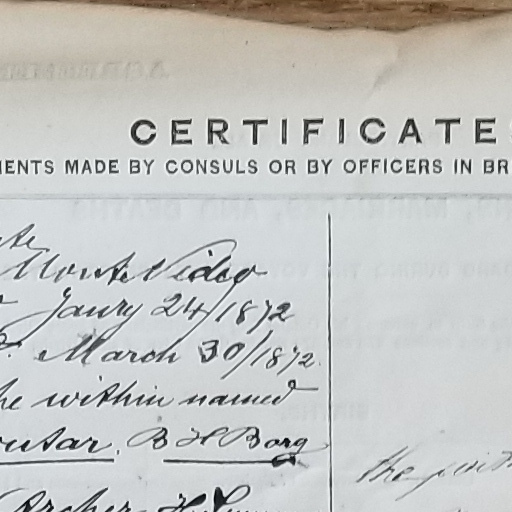 CERTIFICATE
MENTS MADE BY CONSULS OR BY OFFICERS IN BR
Monte Video
Janry 24/1872
March 30/1872.
he within named
B H Borg
the
Archer